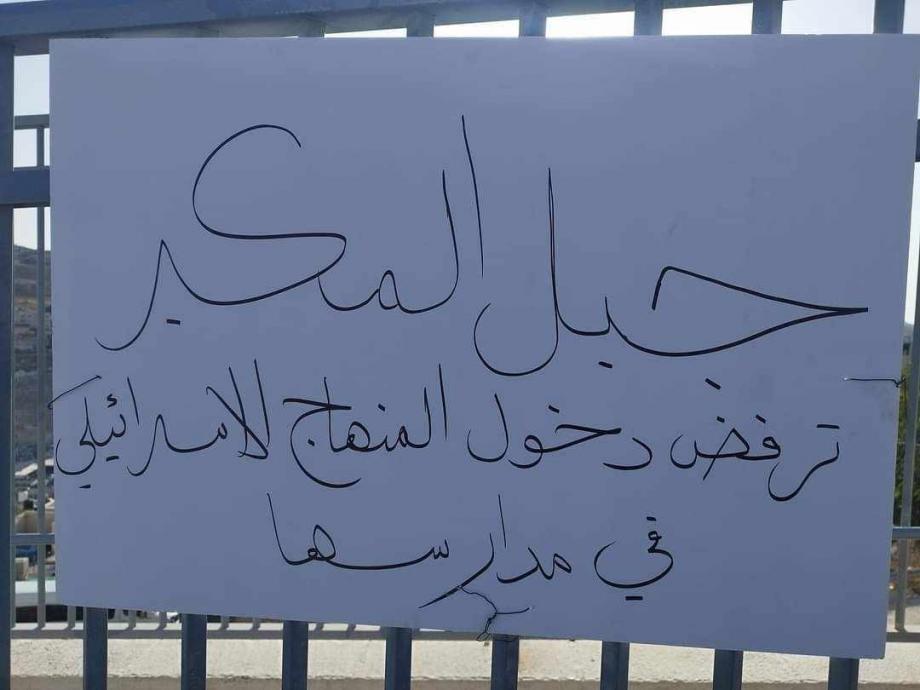 جبل المكبر
ترفض دخول المنهاج الاسرائيلي
في مدارسها